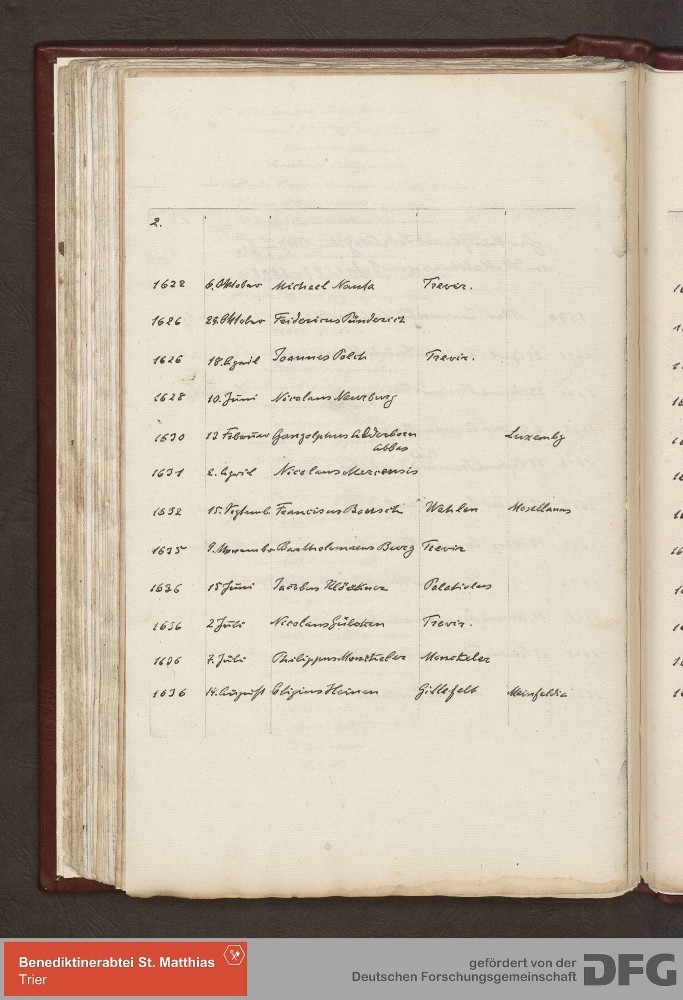 2.
1622 6. Oktober Michael Nauta Trevir.
1626 28. Oktober Fridericus Pünderich
1626 18. April Joannes Polch Trevir.
1628 10. Juni Nicolaus Neurburg
1630 12 Februar Gangolphus Alderborn Luxembg
Abbas
1631 2. April Nicolaus Mercensis
1632 15. Septemb. Franciscus Boersch Wehlen Mosellanus
1635 9. November Bartholomaeus Burg Trevir
1636 15 Juni Jacobus Klöckner Palatiolus
1636 2 Juli Nicolaus Gülcken Trevir.
1636 7. Juli Philippus Moncheler Moncheler
1636 14. August Eligius Heinen Gillefelt Meinfeldia
Benediktinerabtei St. Matthias
Trier
gefördert von der
Deutschen Forschungsgemeinschaft DFG